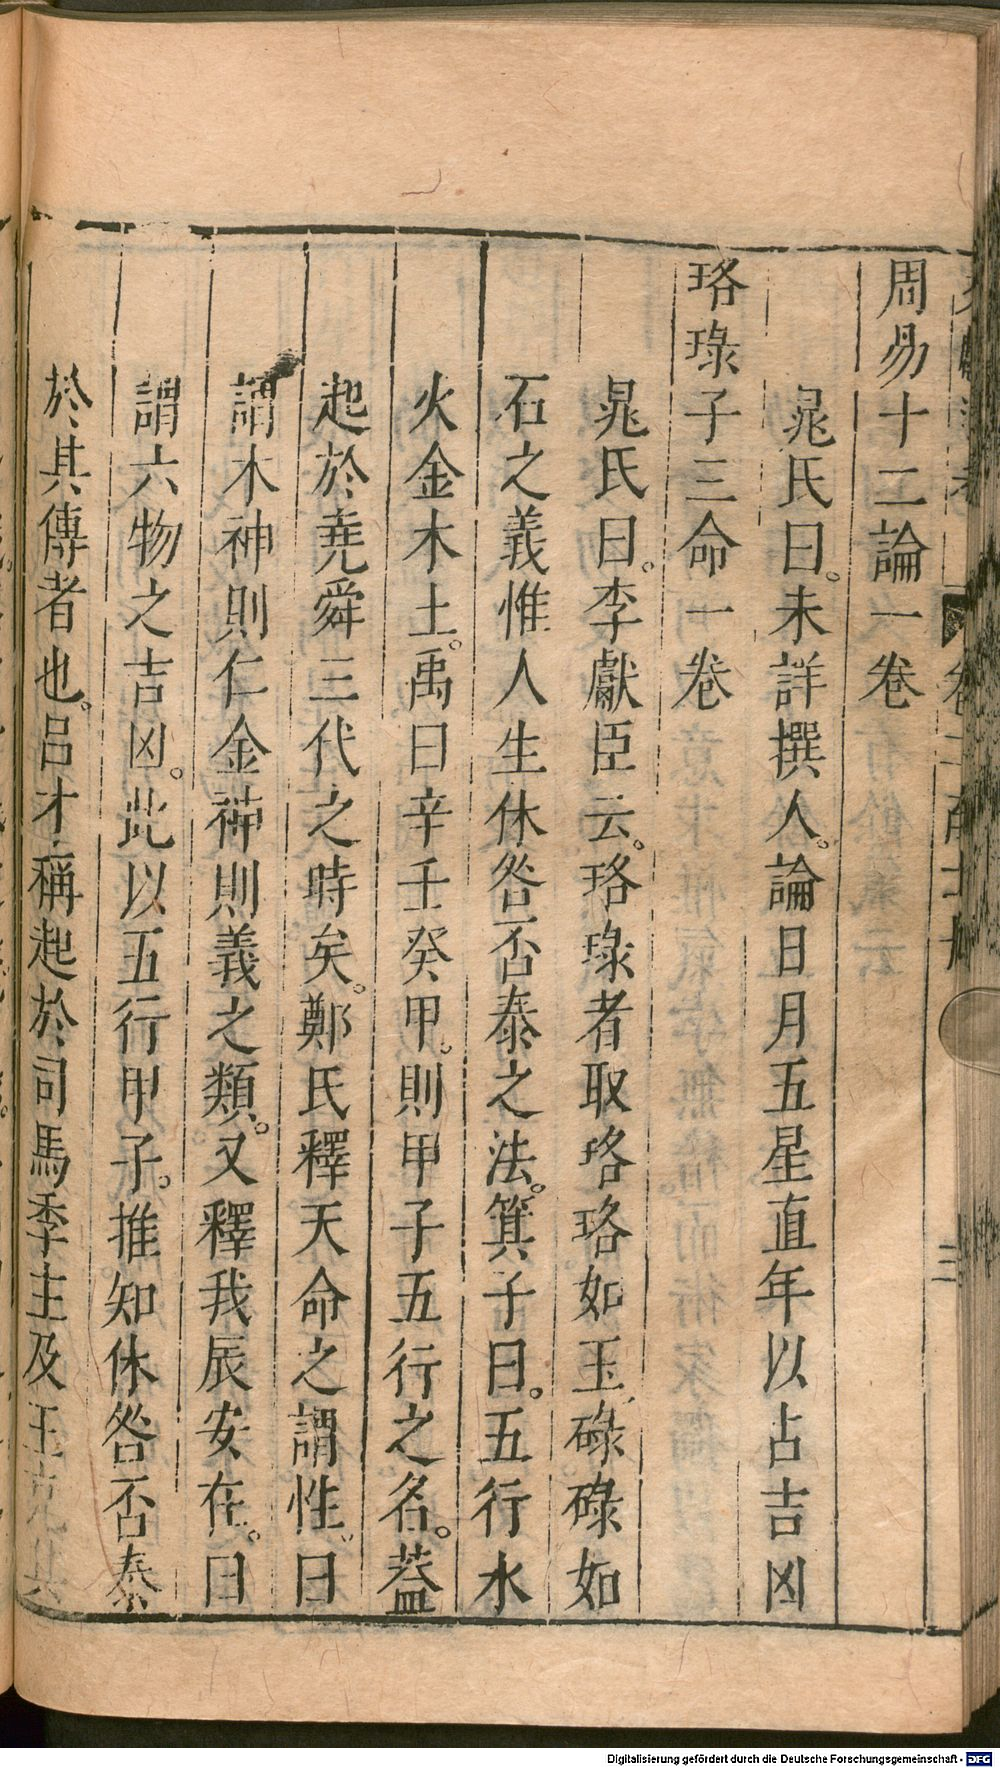 周易十二論一卷
晁氏曰。未詳撰人。論日月五星直年以占吉凶
珞琭子三命一卷
晁氏曰。李獻臣云。珞琭者取珞珞如玉碌碌如
石之義惟人生休咎否泰之法。箕子曰。五行水
火金木土。禹曰辛壬癸甲。則甲子五行之名。蓋
起於堯舜三代之時矣。鄭氏釋天命之謂性。曰
謂木神則仁金神則義之類。又釋我辰安在。曰
謂六物之吉凶。此以五行甲子。推知休咎否泰
於其傳者也。呂才稱起於司馬季主及王
三
Digitalisierung gefördert durch die Deutsche Forschungsgemeinschaft - DFG